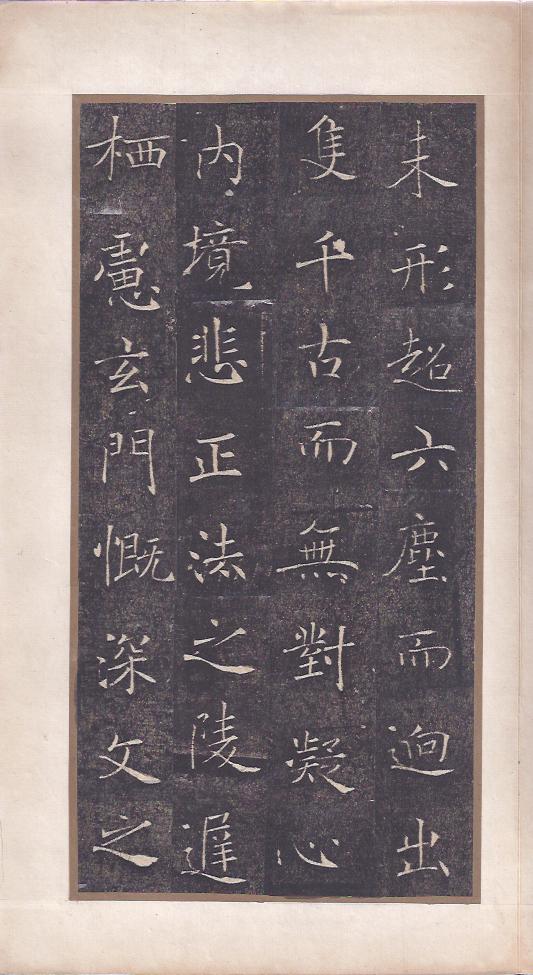 未形超六塵而迥出
隻千古而無對凝心
内境悲正法之陵遲
栖慮玄門慨深文之